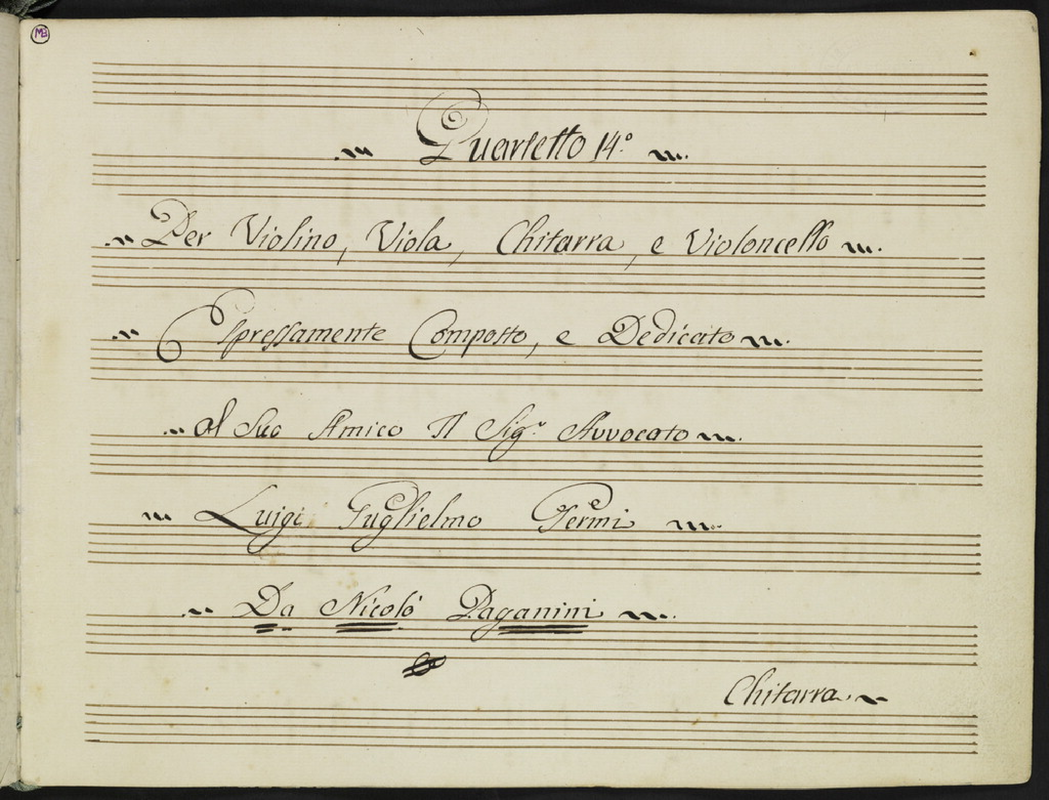 MB
Quartetto 14º
Per Violino, Viola, Chitarra, e Violoncello
Espressamente Composto, e Dedicato
al Suo Amico Il Sigr. Avvocato
Luigi Guglielmo Germi
Da Nicoló Paganini
Chitarra